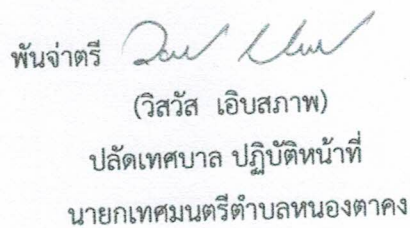 พันจ่าตรี
(วิสวัส เอิบสภาพ)
ปลัดเทศบาล ปฏิบัติหน้าที่
นายกเทศมนตรีตำบลหนองตาคง